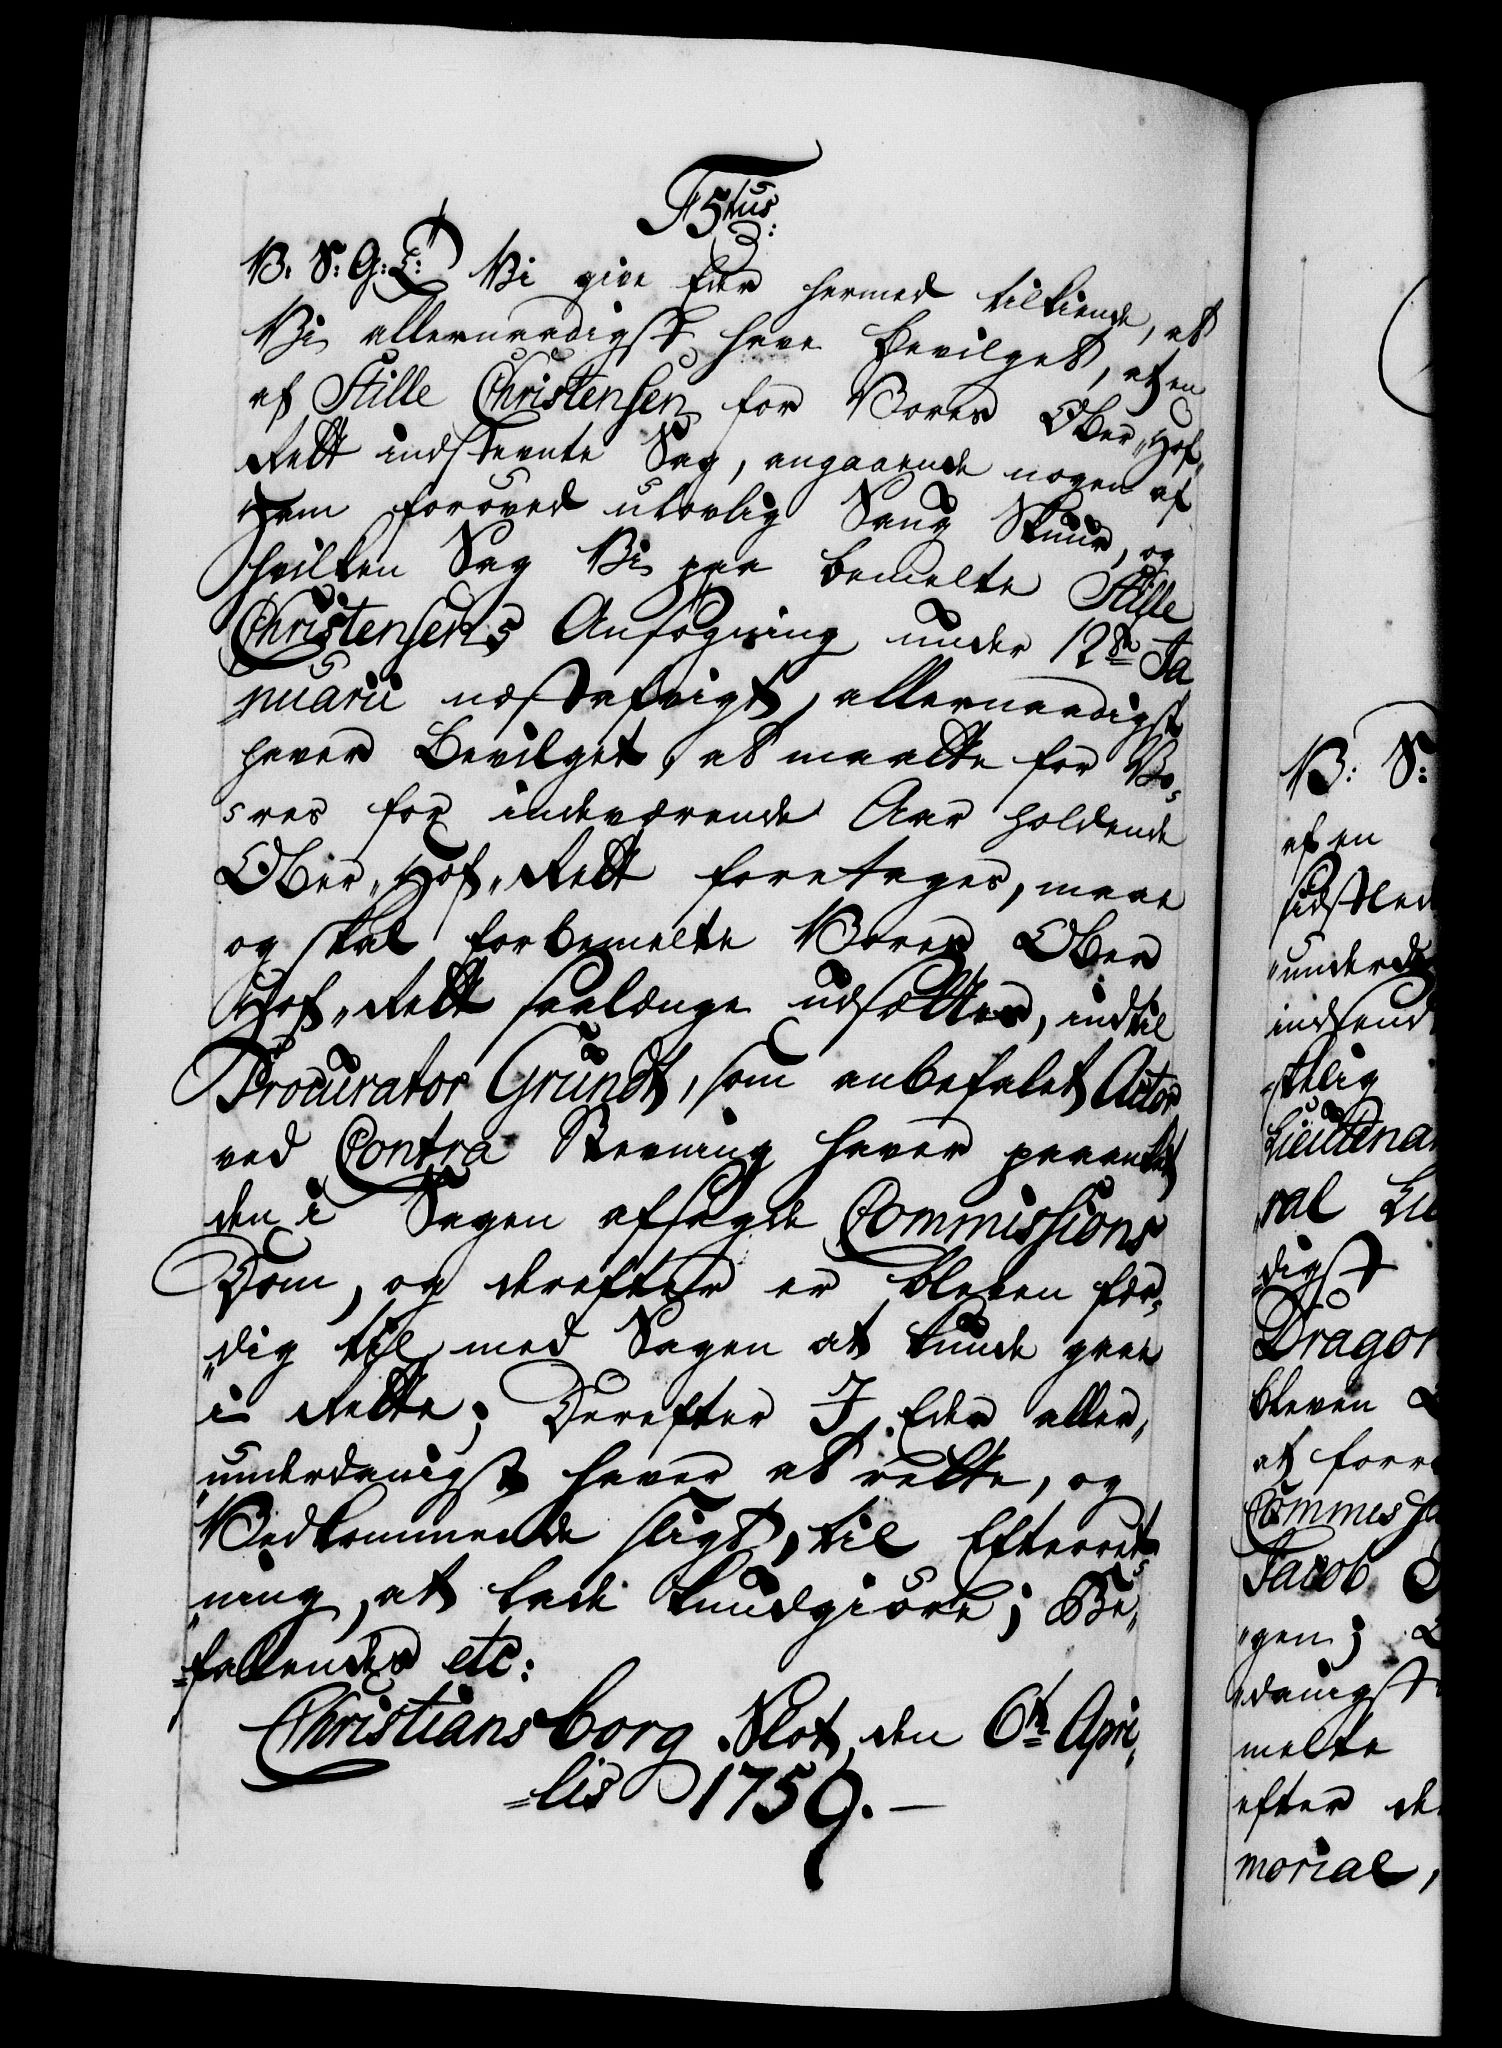 F 5tus:
V. S: G: T: Vi give Eder hermed tilkiende, at
Vi allernaadigst have bevilget, at en
af Stille Christensen for Vores Ober-Hof-
Rett indstevnte Sag, angaaende nogen af
ham forøved ulovlig Saug Skuur, og
hvilken Sag Vi paa bemelte Stille
Christensens Ansøgning under 12te Ja
nuarii næstafvigt, allernaadigst
haver bevilget, at maatte for Vo-
res for indeværende Aar holdende
Ober-Hof-Rett foretages, maae
og skal for bemelte Vores Ober
Hof-Rett saalænge udsættes, indtil
Procurator Grundt, som anbefalet Actor
ved Contra Stevning haver paaanket
den i Sagen afsagde Commissions
Dom, og derefter er bleven fær-
dig til med Sagen at kunde gaae
i Rette; Derefter I Eder aller-
underdanigst haver at rette, og
Vedkommende sligt, til Efterret-
ning, at lade kundgiøre; Be-
fallendes etc:
Christiansborg Slot, den 6te Apri-
lis 1759.
V: S:
af en
sidstled
under d
indsend
-stelig
Lieutena
ral Lie
digst
Dragon
bleven
at forr
Commiss
Jacob
gen;
danigst
melte
efter de
morial,